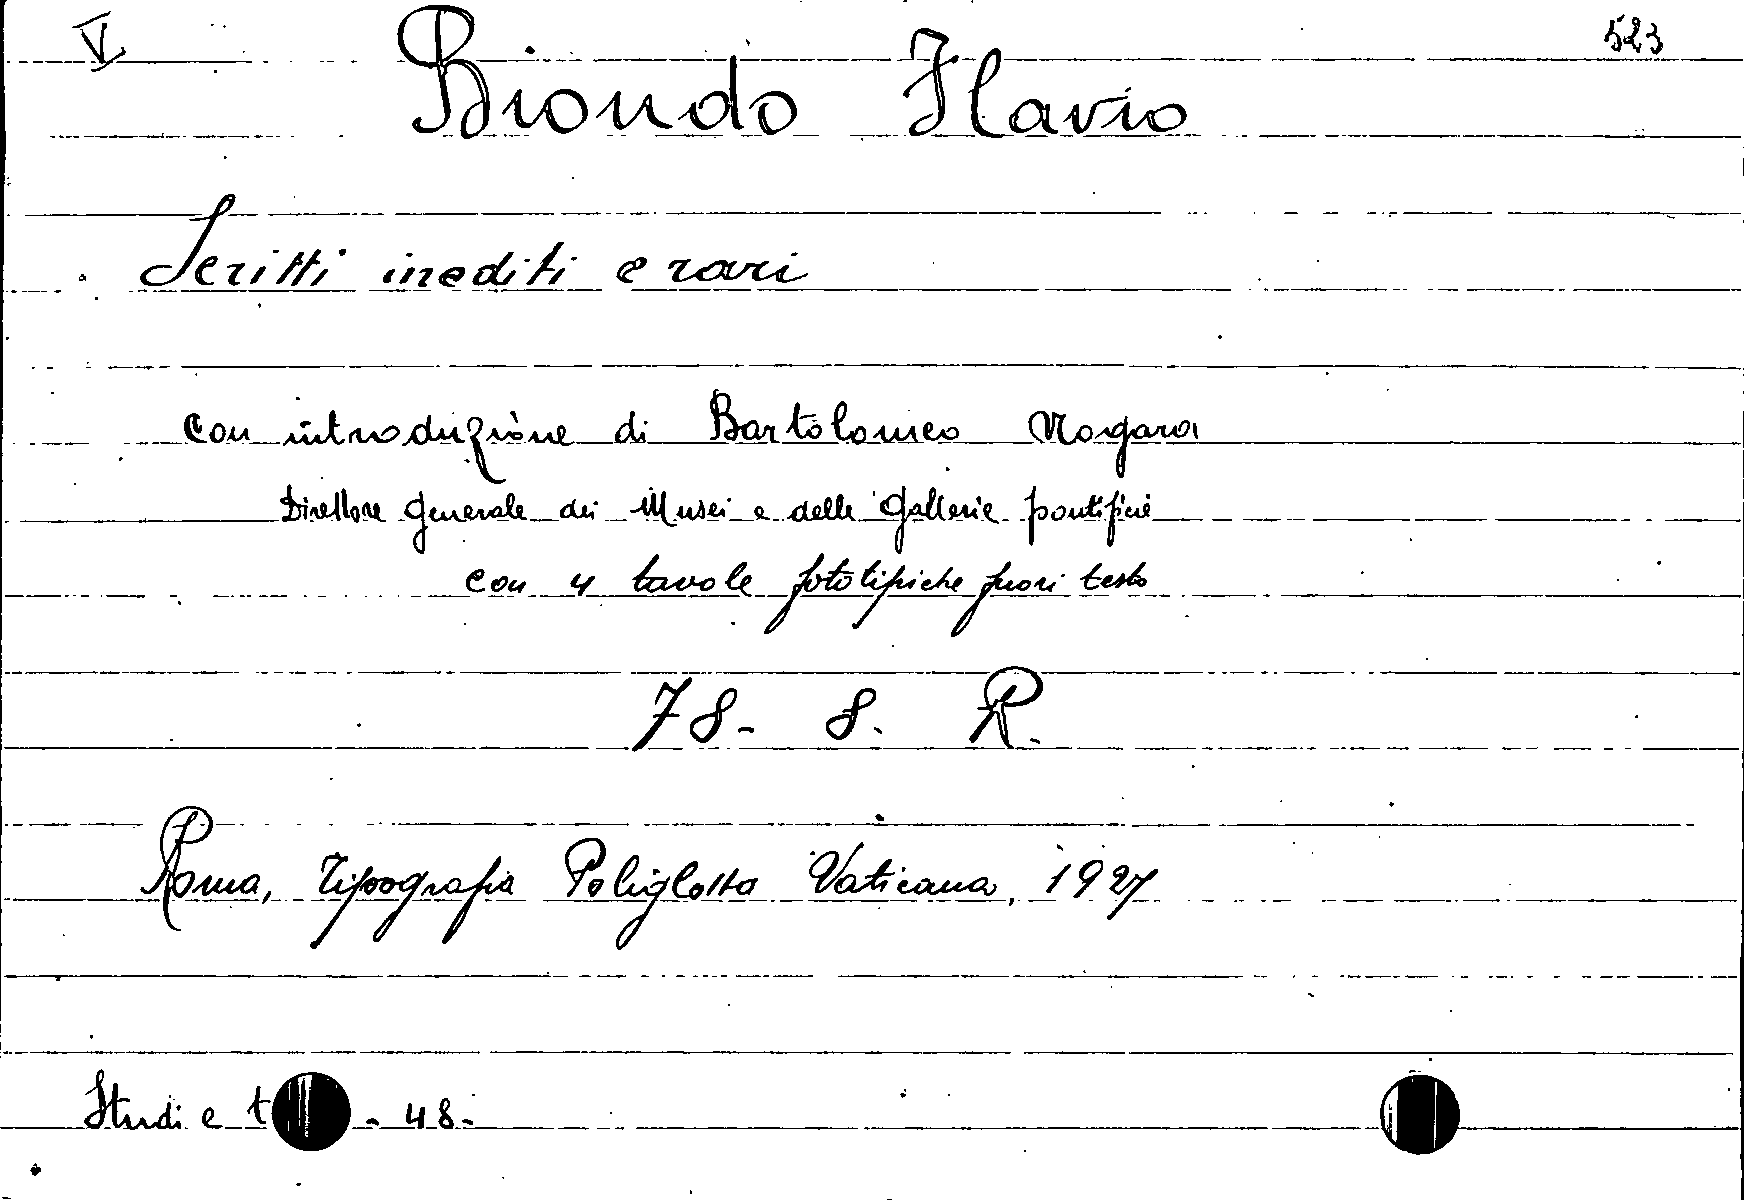 V 523
Biondo Flavio
Scritti inediti e rari
con introduzione di Bartolomeo Nogara
Direttore generale dei Musei e delle Gallerie pontificie
con 4 tavole fototipiche fuori testo
78- 8. R.
Roma, Tipografia Poliglotta Vaticana, 1927
Studi e t - 48-